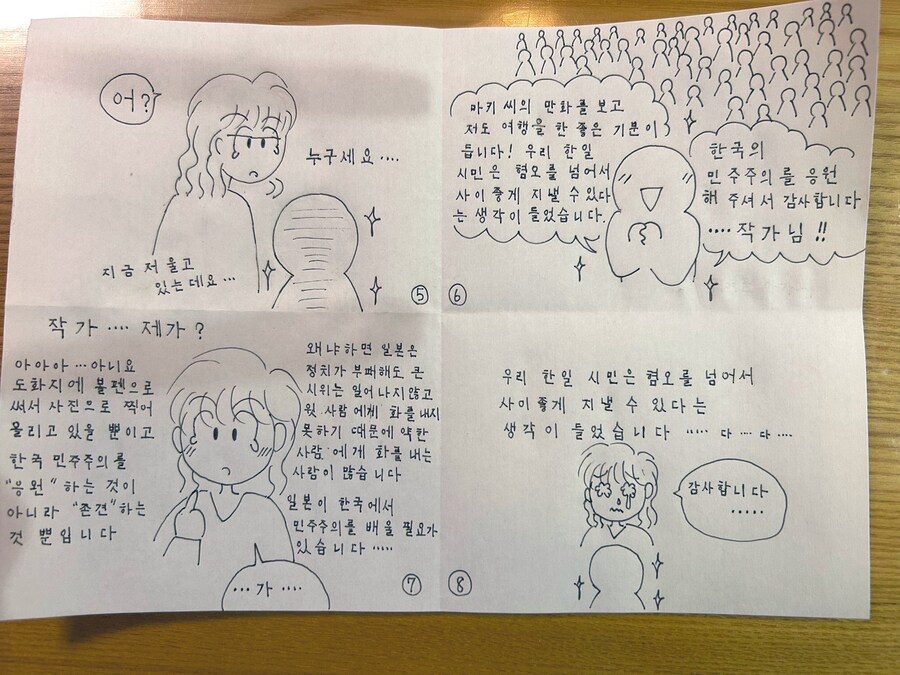 어?
누구세요....
지금 저 울고
있는데요...
⑤
마키 씨의 만화를 보고
저도 여행을 한 좋은 기분이
듭니다! 우리 한일
시민은 혐오를 넘어서
사이좋게 지낼 수 있다
는 생각이 들었습니다.
한국의
민주주의를 응원
해 주셔서 감사합니다
....작가님!!
⑥
작가.... 제가?
아아아...아니요
도화지에 볼펜으로
써서 사진으로 찍어
올리고 있을 뿐이고
한국 민주주의를
"응원"하는 것이
아니라 "존견"하는
것 뿐입니다
왜냐하면 일본은
정치가 부패해도 큰
시위는 일어나지 않고
윗 사람에게 화를 내지
못하기 때문에 약한
사람에게 화를 내는
사람이 많습니다
일본이 한국에서
민주주의를 배울 필요가
있습니다.....
...가....
⑦
우리 한일 시민은 혐오를 넘어서
사이좋게 지낼 수 있다는
생각이 들었습니다 ..... 다....다....
감사합니다
.....
⑧